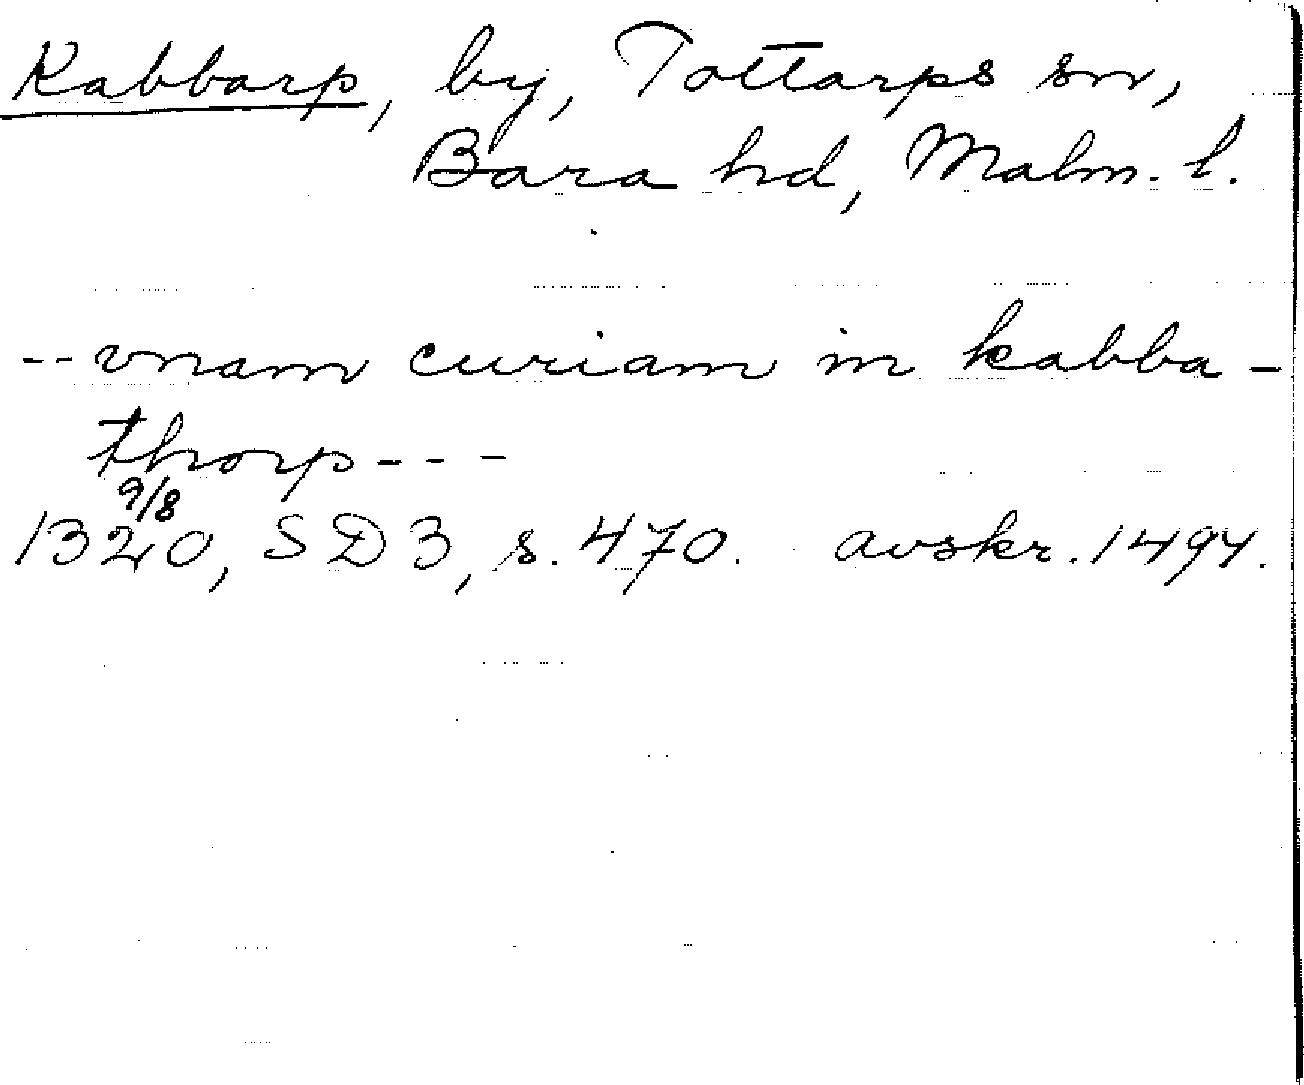 Kabbarp, by, Tottarps sn,
Bara hd, Malm. l.
-- vnam curiam in kabba-
thorp - - -
9/8
1320, SD3, s. 470. avskr. 1494.